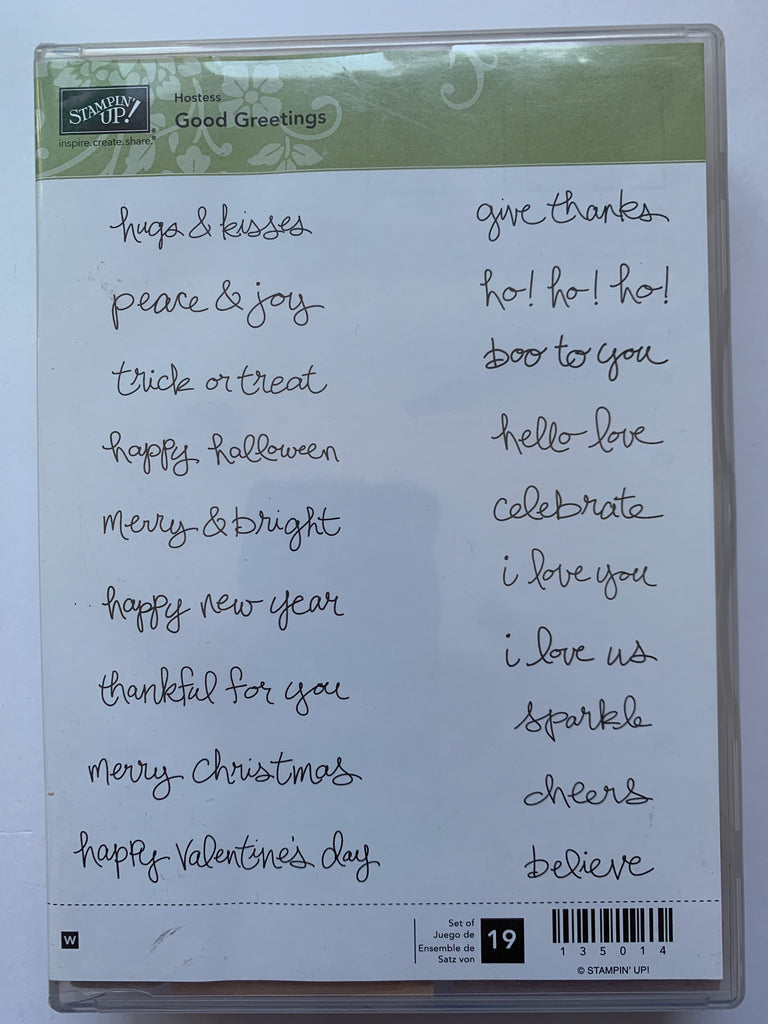 STAMPIN' UP!®
inspire.create.share.®
Hostess
Good Greetings
hugs & kisses
peace & joy
trick or treat
happy halloween
merry & bright
happy new year
thankful for you
merry christmas
happy valentine's day
give thanks
ho! ho! ho!
boo to you
hello love
celebrate
i love you
i love us
sparkle
cheers
believe
W
Set of
Juego de
Ensemble de
Satz von
19
135014
© STAMPIN' UP!